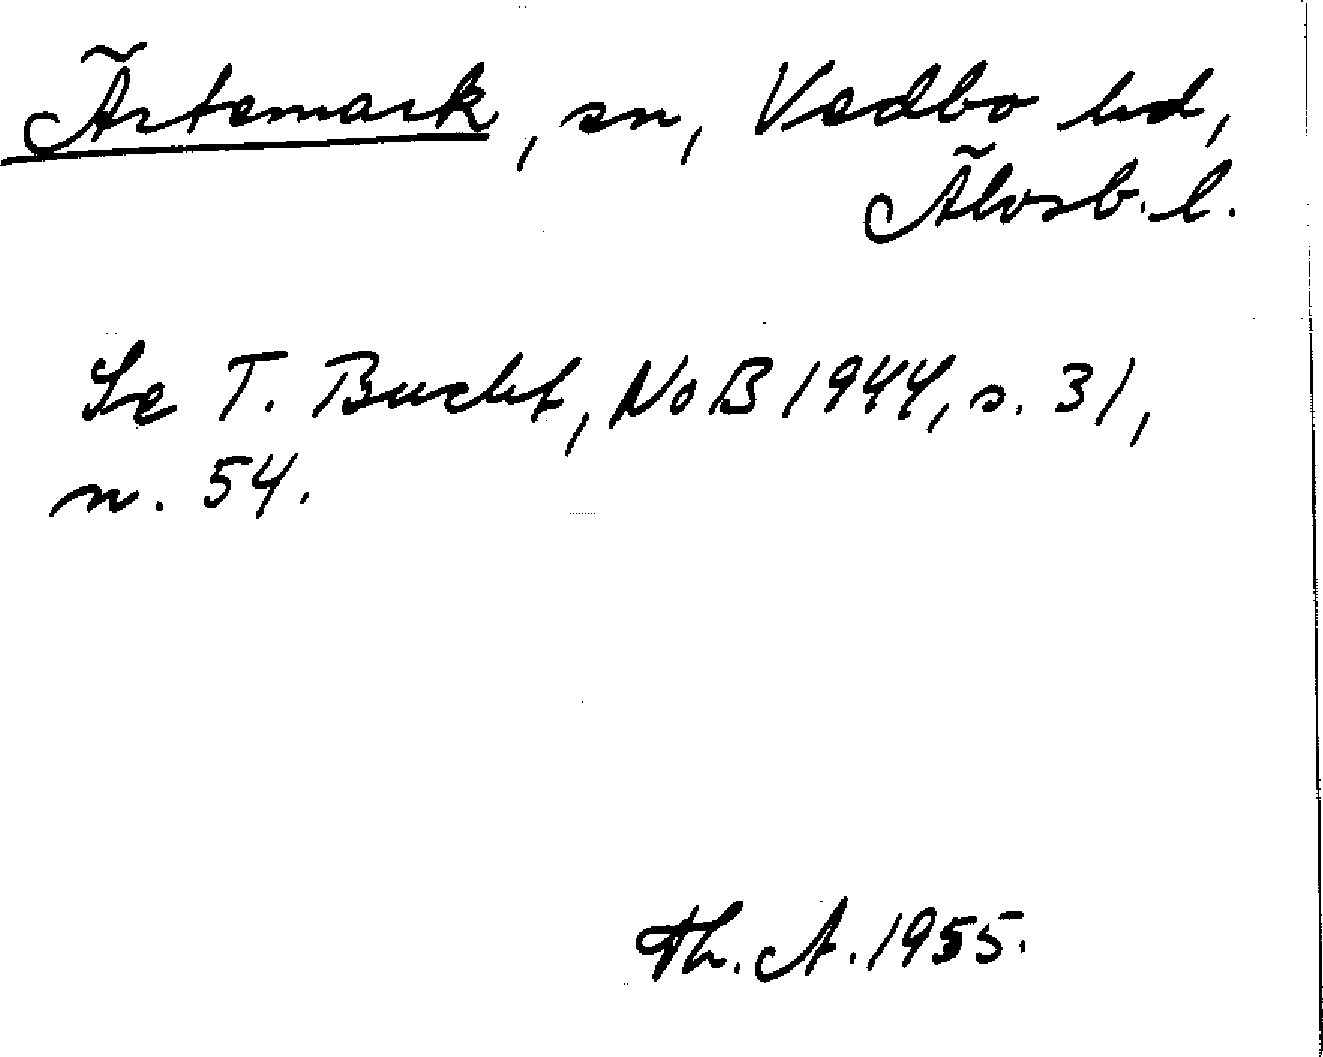 Ärtemark, sn, Vedbo hd,
Älvsb. l.
Se T. Bucht, NoB 1944, s. 31,
n. 54.
Th. A. 1955.